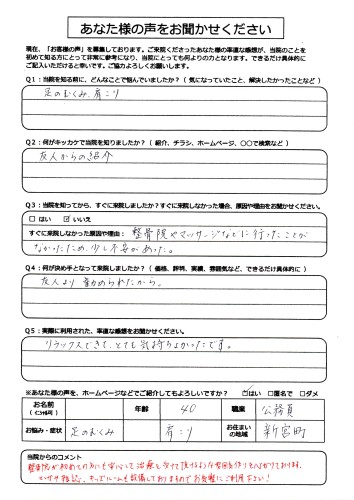 あなた様の声をお聞かせください
現在、「お客様の声」を募集しております。ご来院くださったあなた様の率直な感想が、当院のことを
初めて知る方にとって非常に参考になり、当院にとっても何よりの力となります。できるだけ具体的に
ご記入いただけると幸いです。ご協力よろしくお願いします。
Q1：当院を知る前に、どんなことで悩んでいましたか？（ 気になっていたこと、解決したかったことなど ）
足のむくみ、肩こり
Q2：何がキッカケで当院を知りましたか？（ 紹介、チラシ、ホームページ、〇〇で検索など ）
友人からの紹介
Q3：当院を知ってから、すぐに来院しましたか？すぐに来院しなかった場合、原因や理由をお聞かせください。
□ はい ☑ いいえ
すぐに来院しなかった原因や理由： 整骨院やマッサージなどに行ったことが
なかったため、少し不安があった。
Q4：何が決め手となって来院しましたか？（ 価格、評判、実績、雰囲気など、できるだけ具体的に ）
友人より勧められたから。
Q5：実際に利用された、率直な感想をお聞かせください。
リラックスできて、とても気持ちよかったです。
※あなた様の声を、ホームページなどでご紹介してもよろしいですか？ ☑はい □匿名で □ダメ
お名前
(ｲﾆｼｬﾙ可)
年齢
40
職業
公務員
お悩み・症状
足のむくみ
肩こり
お住まい
の地域
新宮町
当院からのコメント
整骨院が初めての方にも安心して治療を受けて頂けるような雰囲気作りを心がけております。
キッズルームも設備しておりますのでお気軽にご利用下さい！